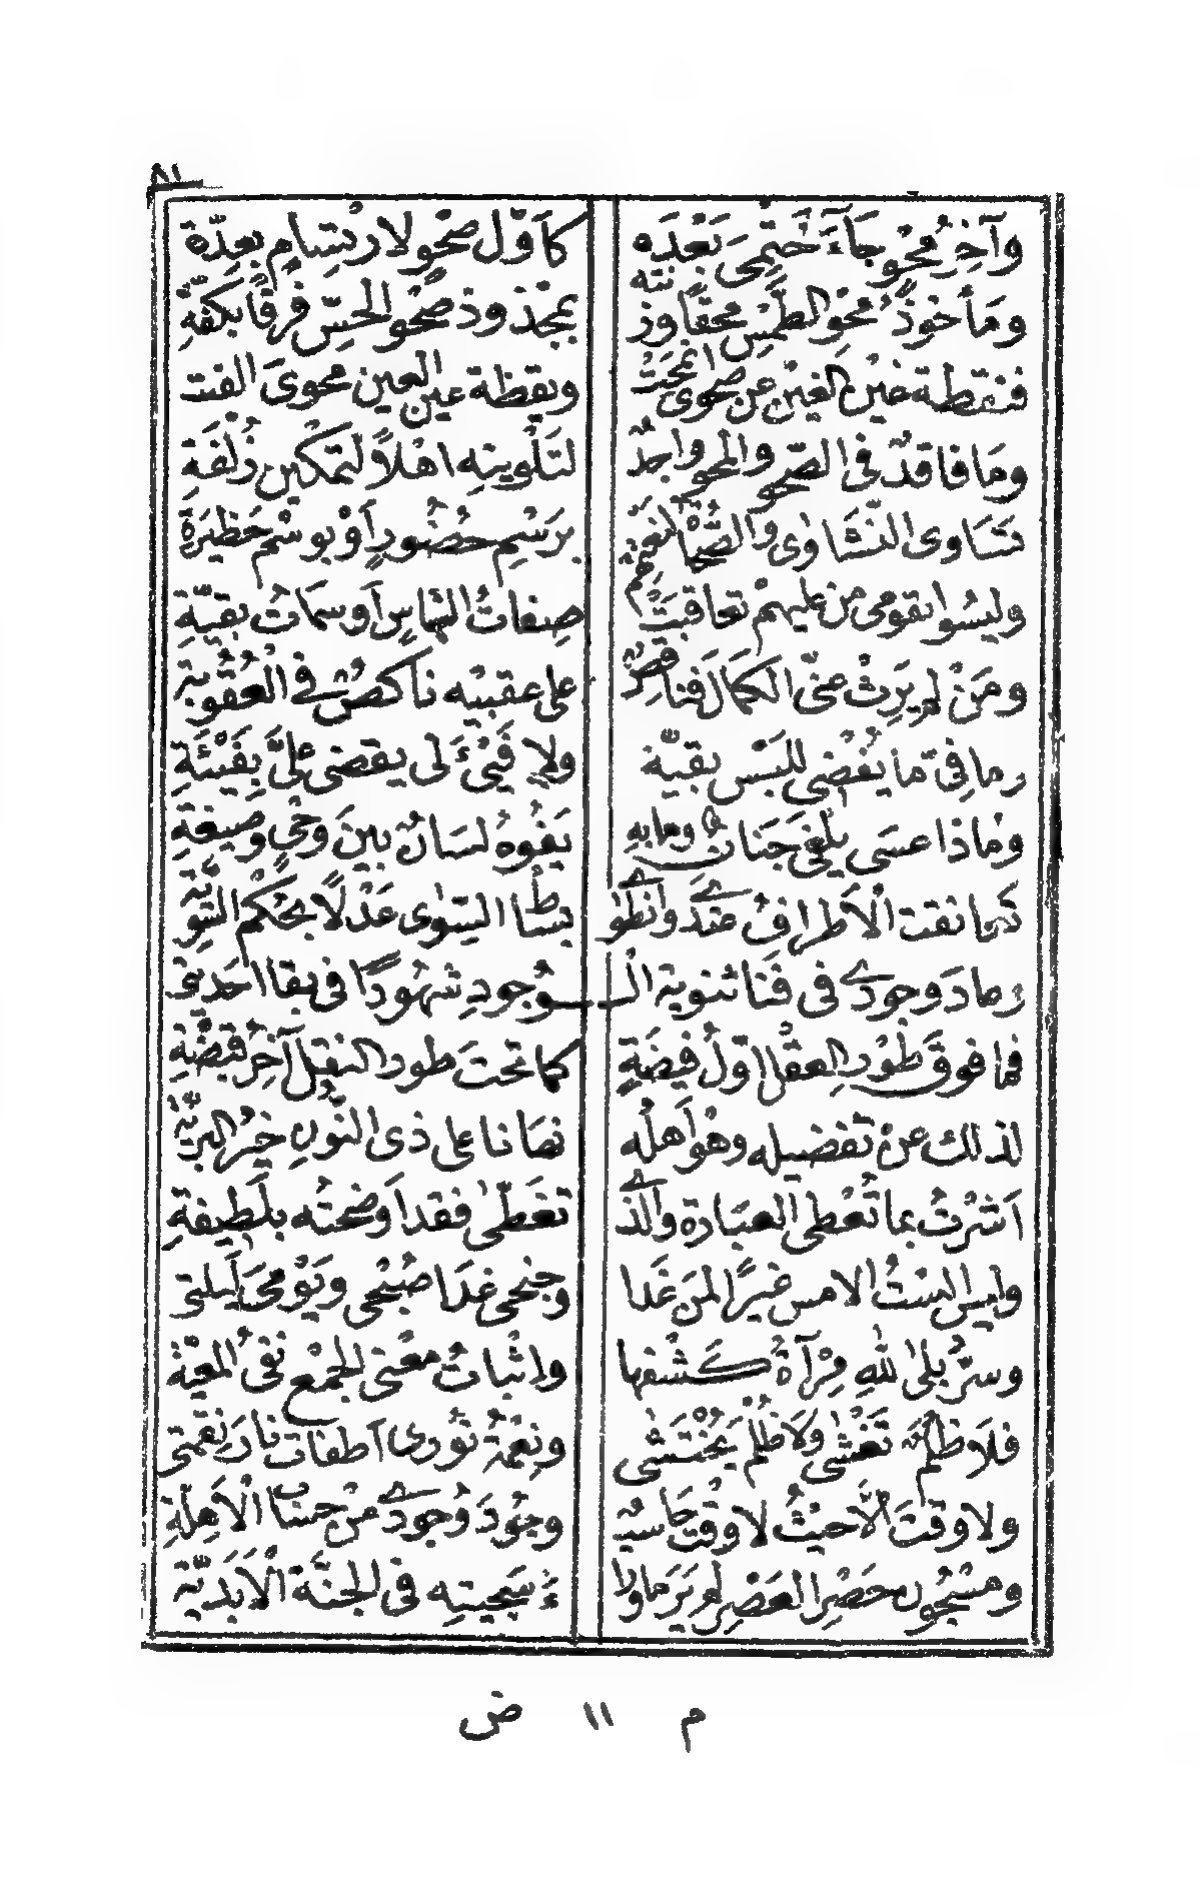 ٨١
وَآخِرُ مَحْوٍ جَآءَ خَتْمِىَ بَعْدَه كَأَوَّلِ صَحْوٍ لارْتِسَامٍ بِعِدَّةِ
وَمَأخُوذُ مَحْوِ الطَّمْسِ مَحْقًا وزنته بمجذوذ صَحْوِ الحِسِّ فَرقًا بكفَّةِ
فنقطة غَيْنِ الغَيْنِ عن صحوى انمحَتْ ويقظة عين العين محوىَ الغت
ومَا فاقدٌ فى الصَّحو والمحو واجدٌ لتَلْوِينِه اهْلاً لتمكين زُلْفَةِ
تَسَاوى النَّشَاوى والصُّحَاةُ لنعتهم برَسْمِ حُضُورٍ أوْ بوسْمِ حَظِيرَةِ
وليسوا بقومى من عليهمْ تعاقبَتْ صِفاتُ التباسٍ أوسمَاتُ بقيَّةِ
ومَنْ لم يَرِثْ عنّى الكمَالَ فناقِصٌ على عقبيْه ناكصٌ فى العُقُوبةِ
وما فىّ ما يُفْضى للَبْس بقيّة ولا فَىْءَ لى يقضى علىَّ بِفَيْئَةِ
وماذا عسَى يلقى جَنانٌ ومابهِ يَفُوهُ لسَانٌ بينَ وَحْىٍ وصيغةِ
تعانقت الأطرافُ عندى وانطوى بِسَاط السّوَى عَدْلاً بحُكْم السّويّة
وعادَ وجودى فى فَنَا ثنوية الـوُجودِ شُهُودًا فى بقا احَديةِ
فما فوقَ طَوْر العقْل اوّلُ فيضَةٍ كما تحتَ طور النقل آخِرُ قبْضَةِ
لذلك عنْ تفضيله وهْوَ أهلُه نهَانا على ذى النّونِ خيْرُ البريَّةِ
اَشَرْتُ بما تُعْطى العبَارة والّذى تغَطّى فقد اوضحتُه بلَطِيفةِ
وليس الستُ الامس غيْرًا لمَن غَدَا وجنحى غدَا صُبْحى ويَوْمىَ لَيلتى
وسرُّ بلى للهِ مِرْآةُ كَشْفها واثْباتُ معْنى الجمْع نفىُ المعيَّةِ
فلَا ظُلَمٌ تَغْشَى وَلَا ظُلْمَ يُخْتَشَى ونِعْمَةُ نُورى اَطفاتْ نارَ نِقْمَتى
ولا وقتَ إلّا حيْثُ لا وقْتَ حَاسبٌ وجُودَ وُجودى من حسَاب الأهِلَّةِ
ومسْجُون حَصْرِ العَصْرِ لم يَرَ ماورَا ءَ سَجِيّتِه فى الجنَّة الأبَديَّةِ
م ١١ ض